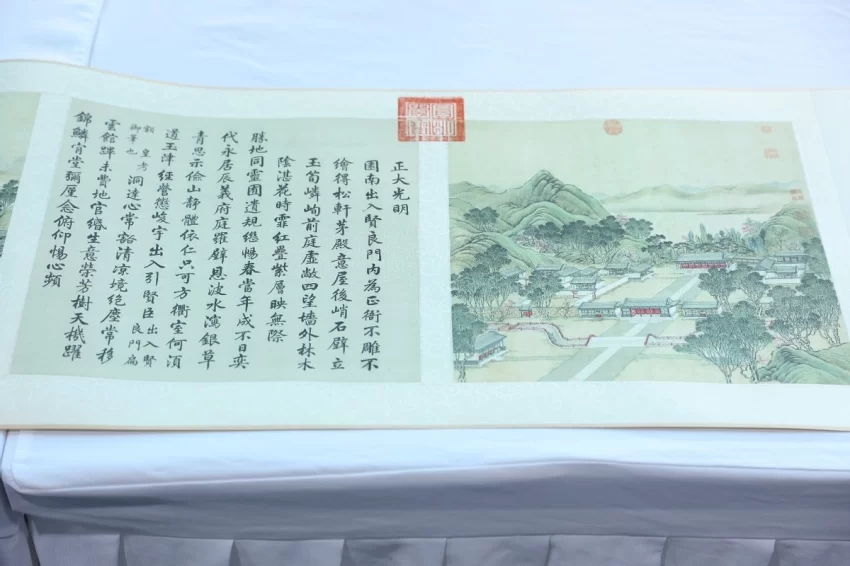 正大光明
園南出入賢良門内為正衙不雕不
繪得松軒茅殿意屋後峭石壁立
玉筍嶙峋前庭虛敞四望墻外林木
陰湛花時霏紅疊紫層映無際
勝地同靈囿遺規繼暢春當年成不日奕
代永居辰義府庭羅壁恩波水瀉銀草
青思示儉山靜體依仁只可方衢室何須
道玉津經營懲峻宇出入引賢臣出入賢良門扁
額皇考御筆也洞達心常豁清涼境絕塵常移
雲館蹕未費地官緡生意榮芳樹天機躍
錦鱗肯堂彌厪念俯仰惕心頻